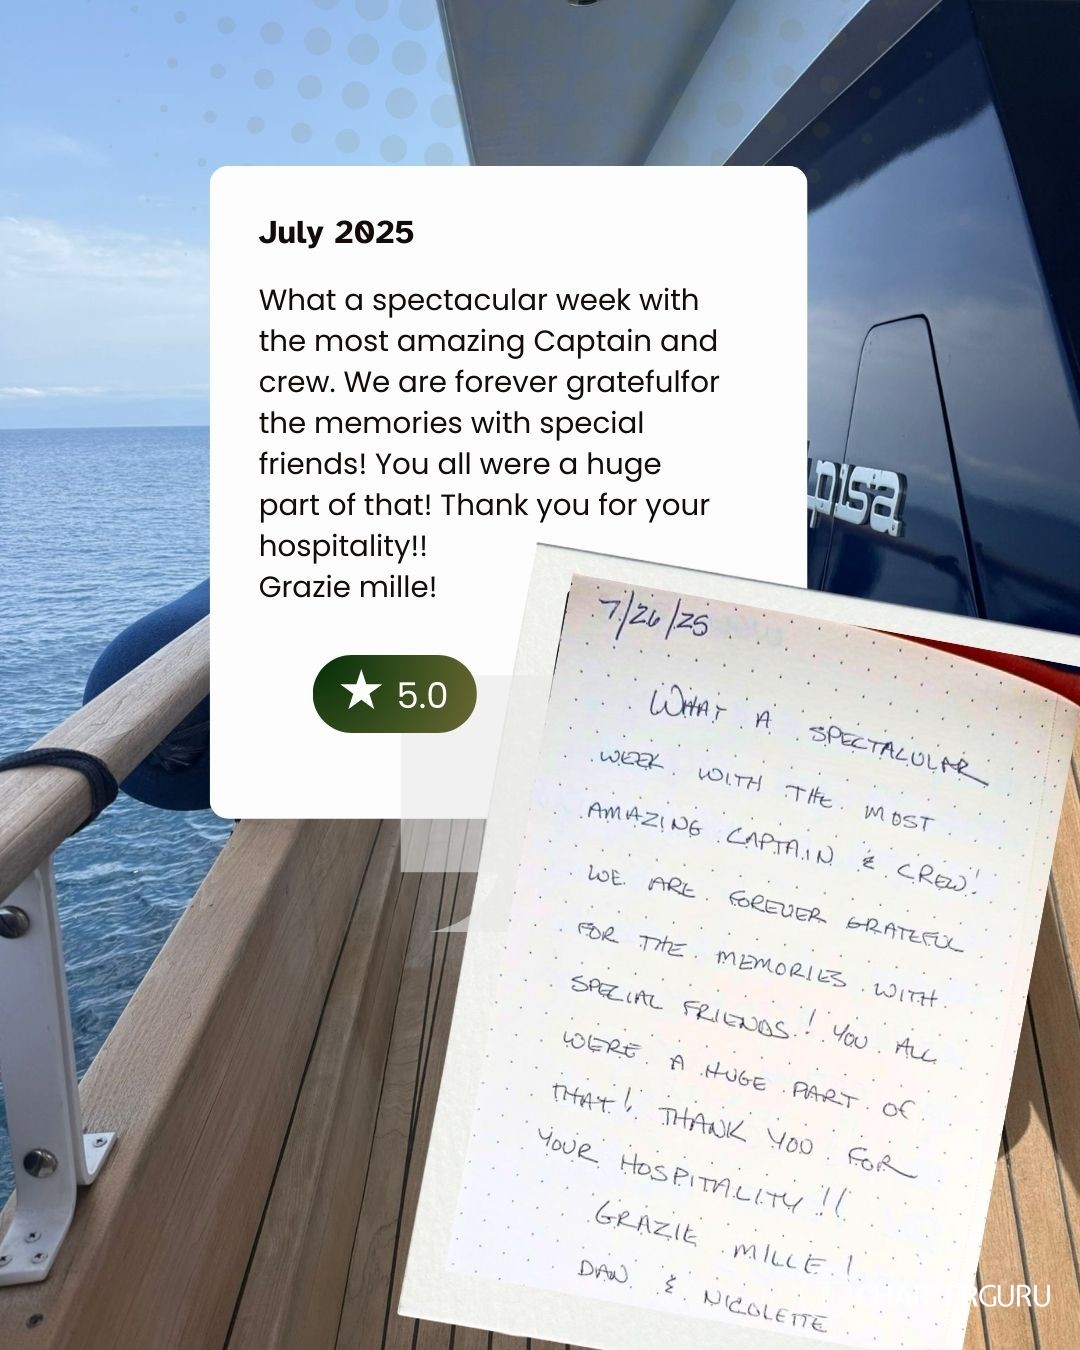 July 2025
What a spectacular week with
the most amazing Captain and
crew. We are forever gratefulfor
the memories with special
friends! You all were a huge
part of that! Thank you for your
hospitality!!
Grazie mille!
★ 5.0
pisa
7/26/25
WHAT A SPECTACULAR
WEEK WITH THE MOST
AMAZING CAPTAIN & CREW!
WE ARE FOREVER GRATEFUL
FOR THE MEMORIES WITH
SPECIAL FRIENDS! YOU ALL
WERE A HUGE PART OF
THAT! THANK YOU FOR
YOUR HOSPITALITY!!
GRAZIE MILLE!
DAN & NICOLETTE
CHARTERGURU